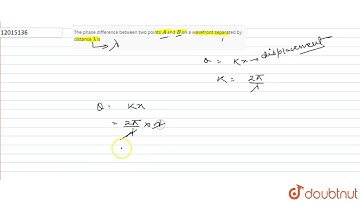 12015136
The phase difference between two points A and B on a wavefront separated by
distance λ is
↳ λ
Q = Kx → displacement
K = 2π/λ
Q = Kx
= 2π/λ × λ
doubtnut